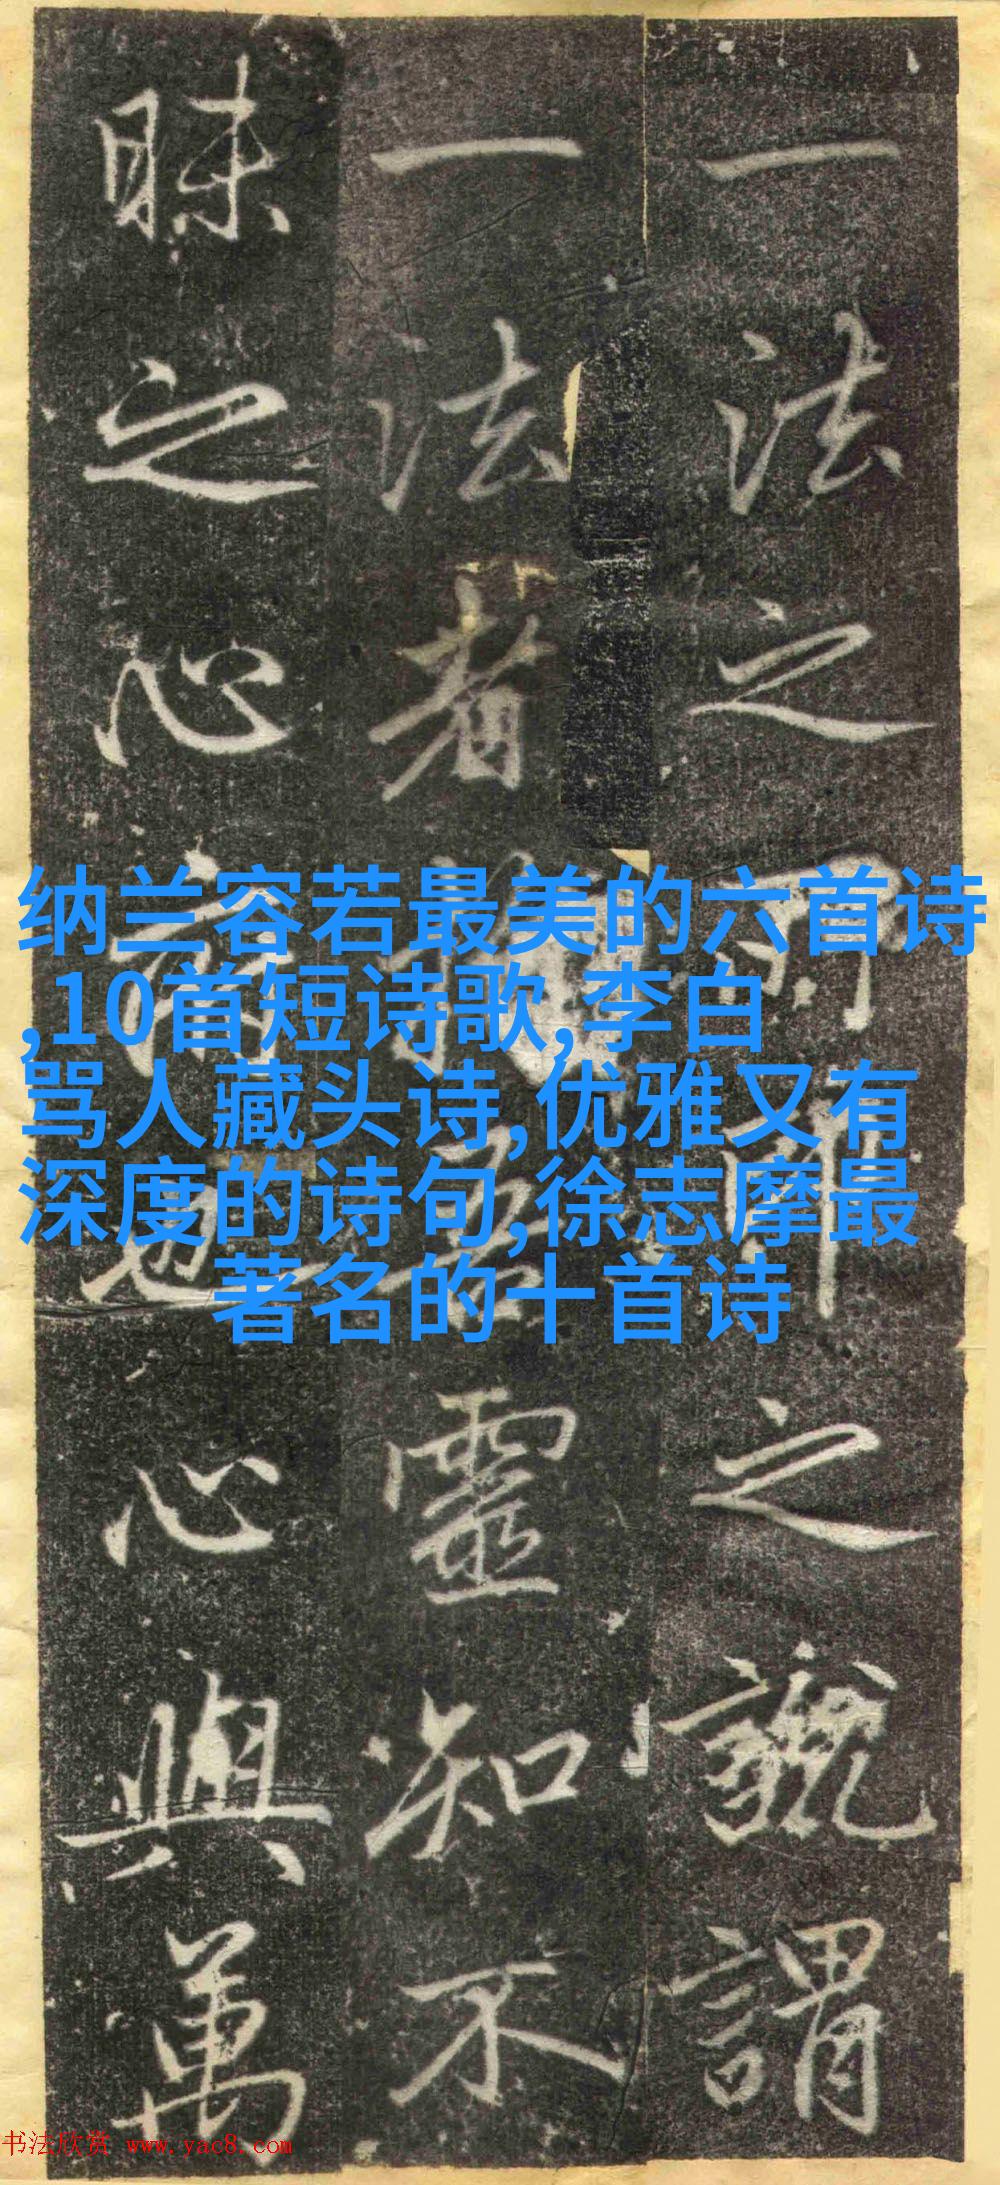 纳兰容若最美的六首诗
,10首短诗歌,李白
骂人藏头诗,优雅又有
深度的诗句,徐志摩最
著名的十首诗
一法之所印之謂
一法者靈知不
昧之心也心與萬
书法欣赏 www.yac8.com